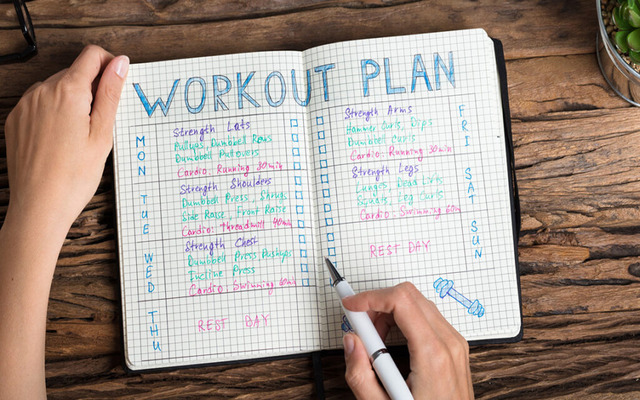 WORKOUT PLAN
MON
Strength Lats
Pullups, Dumbbell Rows
Dumbbell Pullovers
Cardio: Running 30 min
TUE
Strength Shoulders
Dumbbell Press, Shrugs
Side Raise, Front Raise
Cardio: Threadmill 40 min
WED
Strength Chest
Dumbbell Press Pushups
Incline Press
Cardio Swimming 60 min
THU
REST DAY
FRI
Strength Arms
Hammer Curls, Dips
Dumbbell Curls
Cardio: Running 30 min
SAT
Strength Legs
Lunges, Dead Lifts
Squats, Leg Curls
Cardio: Swimming 60 min
SUN
REST DAY